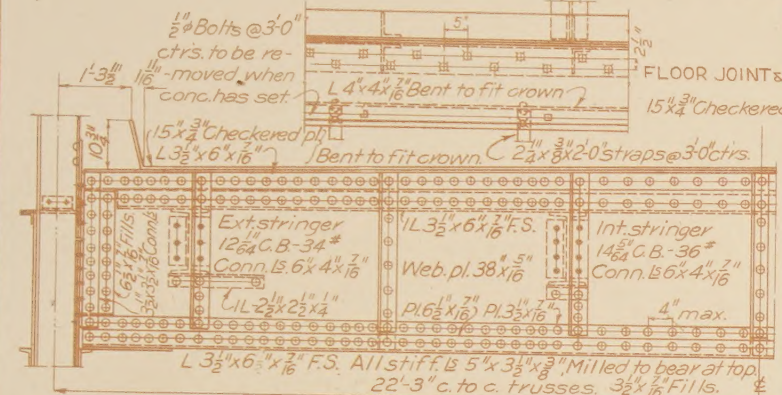 ½"ø Bolts @ 3'-0"
ctrs. to be re-
moved when
conc. has set.
5"
2½"
1'-3½"
1 11/16"
10¾"
FLOOR JOINT &
15"x¾" Checkered
L 4"x4"x7/16" Bent to fit crown
15"x¾" Checkered pl.
L 3½"x6"x7/16"
Bent to fit crown.
2¼"x⅜"x2'-0" straps @ 3'-0" ctrs.
6½"x7/16" Fills.
Ext. stringer
12¼" C.B.-34#
Conn. Ls 6"x4"x7/16"
1L-2½"x2½"x¼"
1L 3½"x6"x7/16" F.S.
Web. pl. 38"x5/16"
Pl. 6½"x7/16"
Pl. 3½"x7/16"
Int. stringer
C.B.-36#
Conn. Ls 6"x4"x7/16"
4" max.
L 3½"x6"x7/16" F.S. All stiff. Ls 5"x3½"x⅜", Milled to bear at top.
22'-3" c. to c. trusses. 3½"x7/16" Fills.